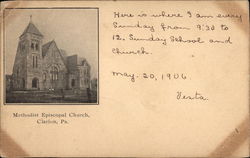 Here is where I am every
Sunday from 9:30 to
12, Sunday School and
Church.
May. 20, 1906
Vesta.
Methodist Episcopal Church,
Clarion, Pa.